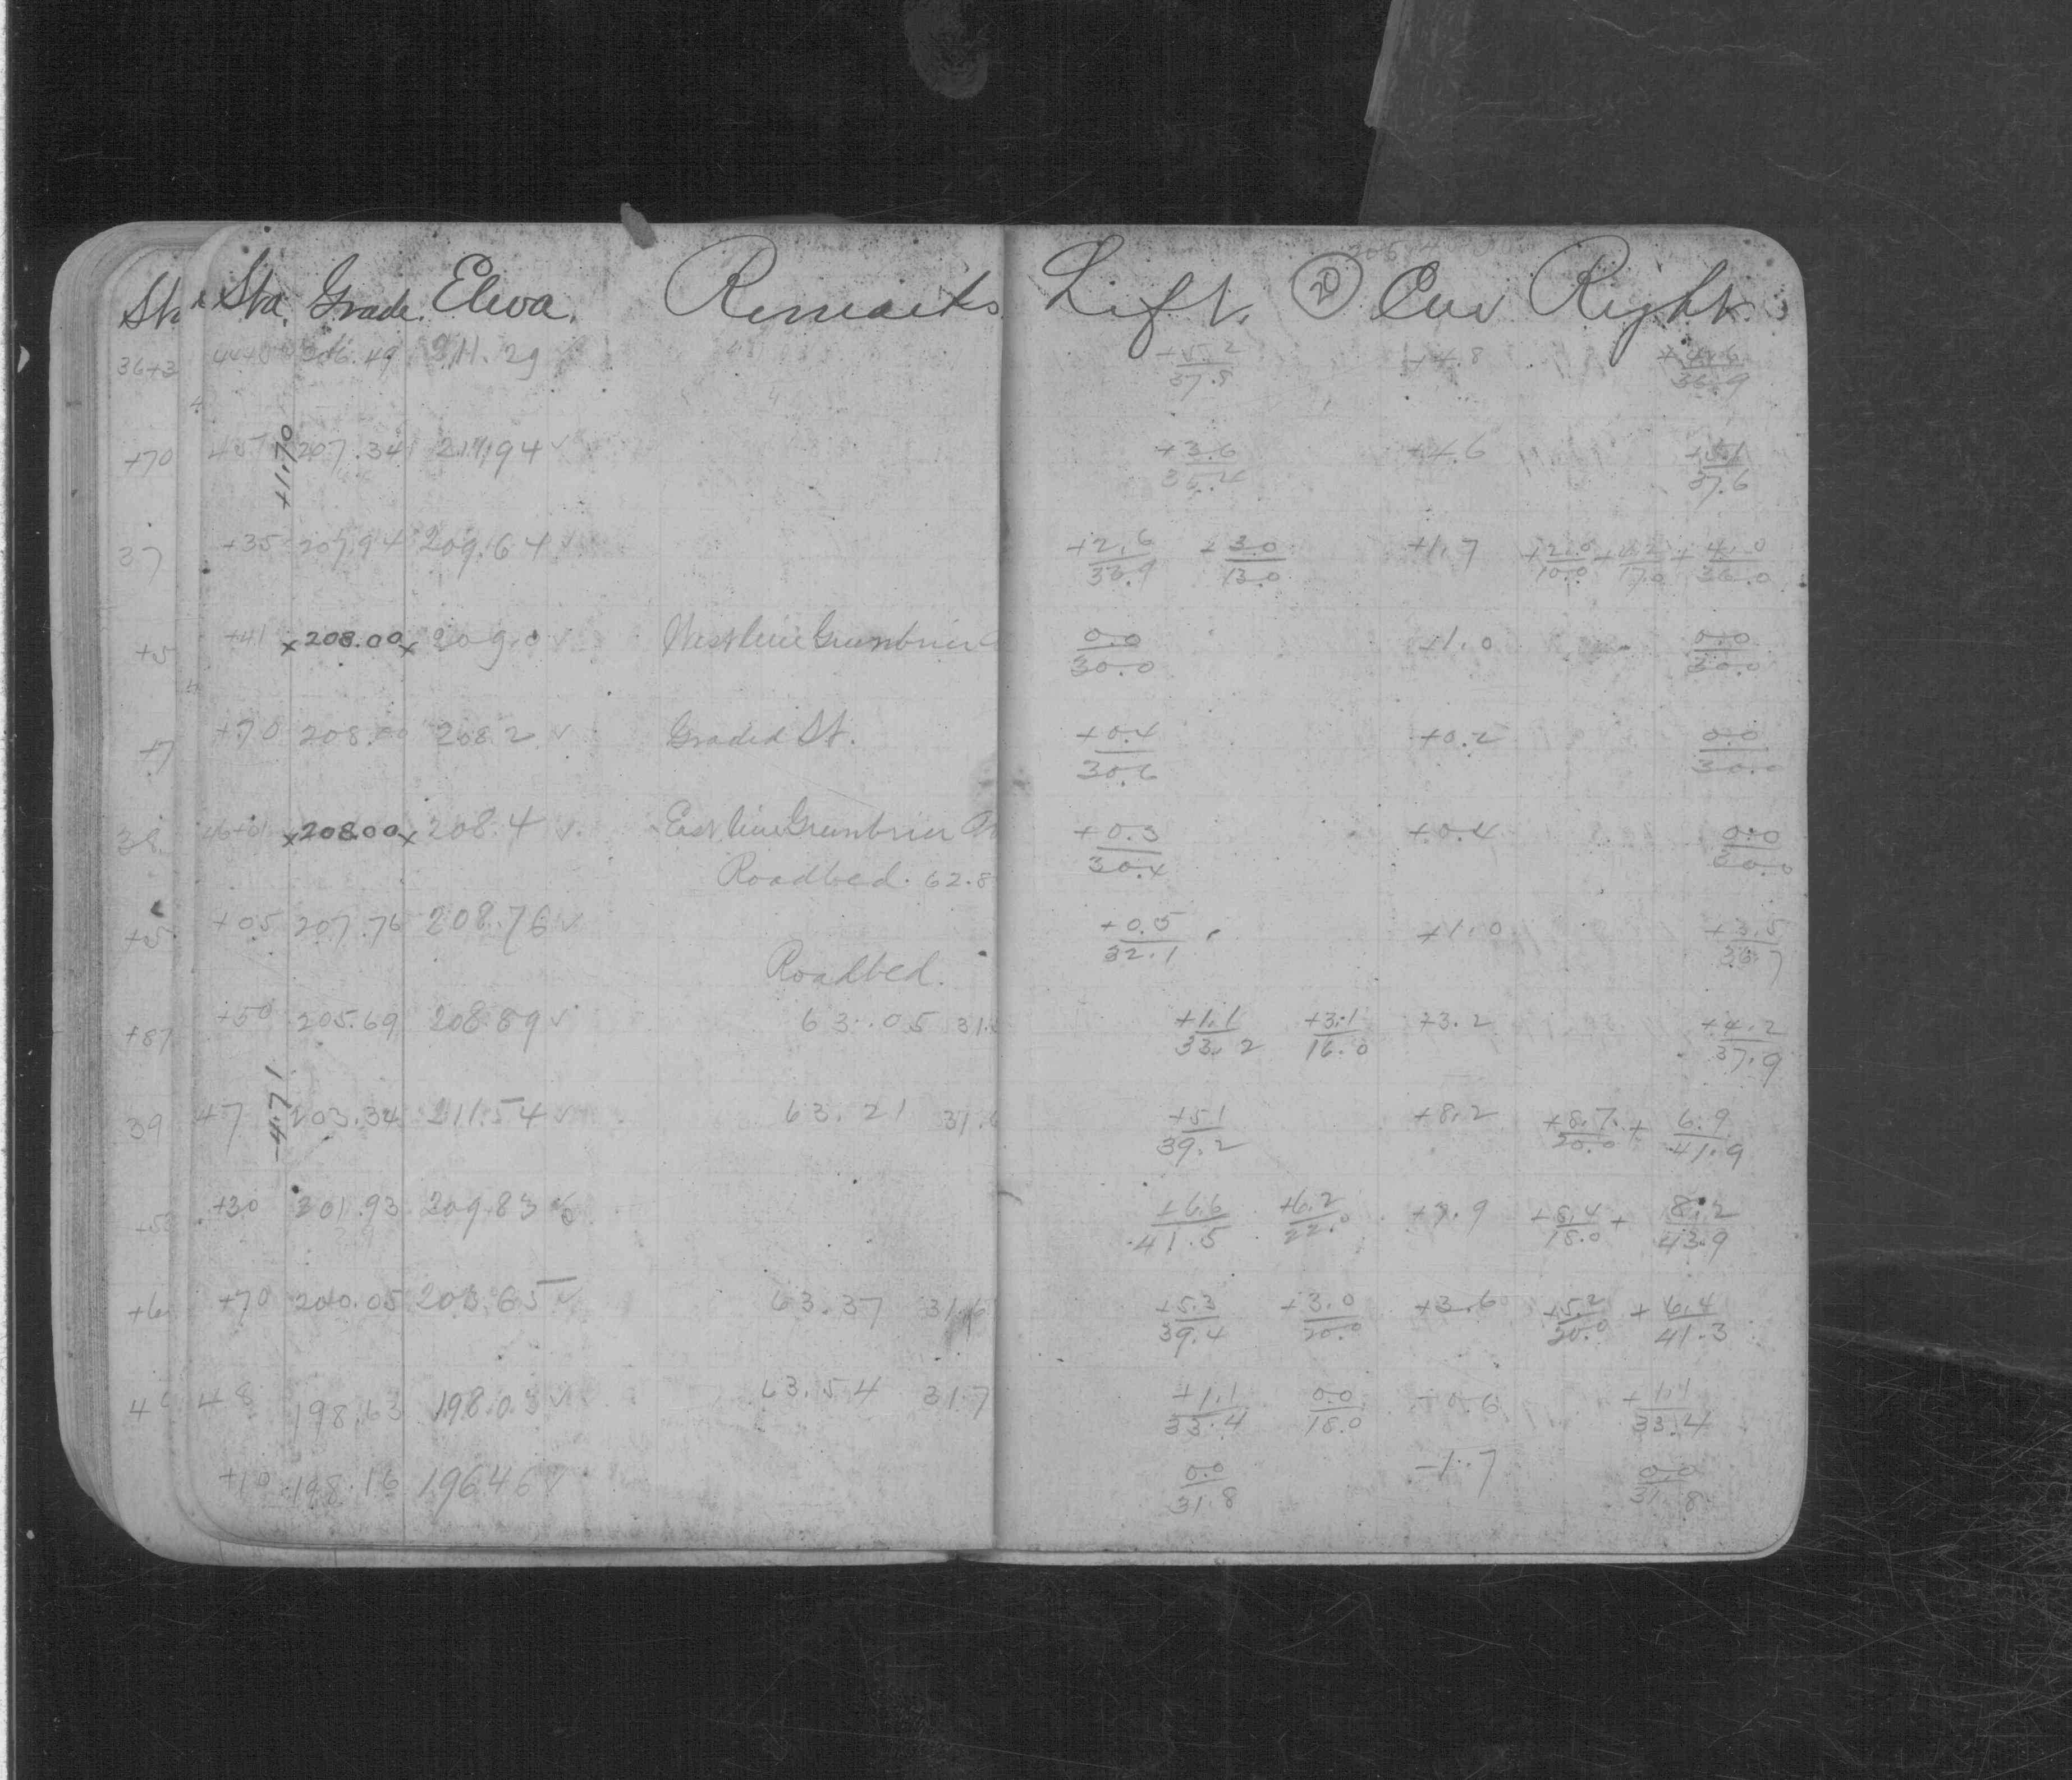 Sta. Grade. Eleva. Remarks Left. 20 Cen Right
36+3 206.49 211.29 +5.2/37.8 +4.8 +4.6/36.9
+1.70
+70 45 207.34 211.94 ✓ +3.6/35.4 +4.6 +5.1/37.6
37 +35 207.94 209.64 ✓ +2.6/33.9 +3.0/13.0 +1.7 +2.0/10.0 +4.2/17.0 +4.0/36.0
+5 +41 x 208.00 x 209.0 ✓ West line Greenbrier 0.0/30.0 +1.0 0.0/30.0
+7 +70 208.00 208.2 ✓ Graded St. +0.4/30.6 +0.2 0.0/30.0
38 46+01 x 208.00 x 208.4 ✓ East line Greenbrier Av +0.3/30.4 +0.4 0.0/30.0
Roadbed. 62.8
+5 +05 207.76 208.76 ✓ +0.5/32.1 +1.0 +3.5/36.7
Roadbed.
+87 +50 205.69 208.89 ✓ 63.05 31. +1.1/33.2 +3.1/16.0 +3.2 +4.2/37.9
-4.71
39 47 203.34 211.54 ✓ 63.21 31.6 +5.1/39.2 +8.2 +8.7/20.0 + 6.9/41.9
+30 201.93 209.83 +6.6/41.5 +6.2/22.0 +7.9 +8.4/18.0 + 8.2/43.9
+6 +70 200.05 203.65 ✓ 63.37 31.6 +5.3/39.4 +3.0/20.0 +3.6 +5.2/20.0 + 6.4/41.3
4 48 198.63 198.03 ✓ 63.54 31.7 +1.1/33.4 0.0/18.0 -0.6 +1.1/33.4
+10 198.16 196.46 ✓ 0.0/31.8 -1.7 0.0/31.8